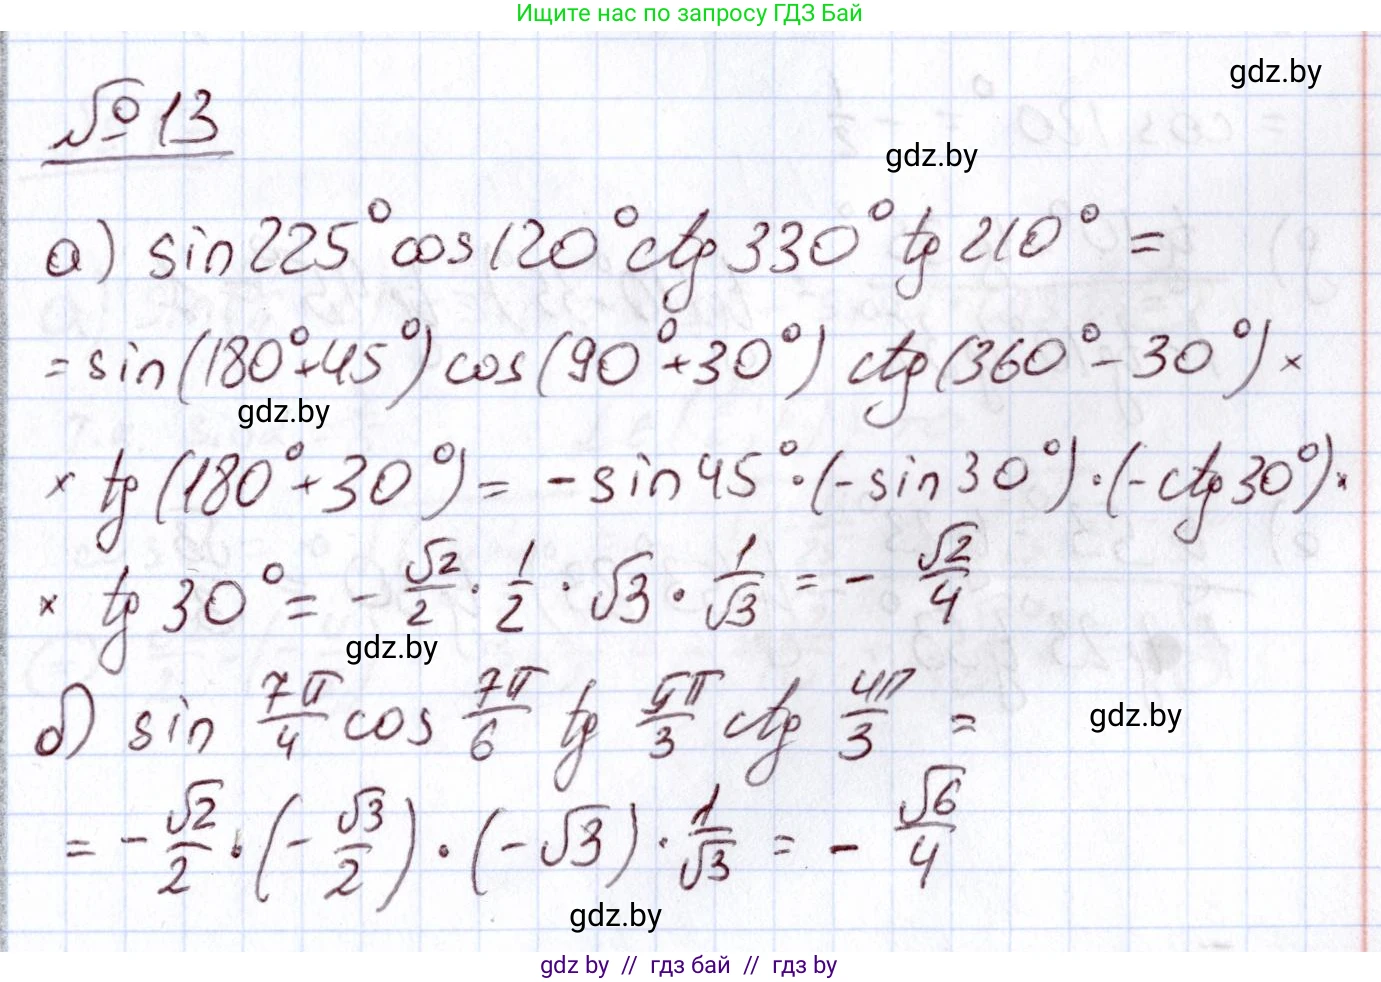 Ищите нас по запросу ГДЗ Бай
gdz.by
№ 13
gdz.by
а) sin 225° cos 120° ctg 330° tg 210° =
= sin (180° + 45°) cos (90° + 30°) ctg (360° - 30°) ×
gdz.by
× tg (180° + 30°) = - sin 45° · (- sin 30°) · (- ctg 30°) ×
× tg 30° = - √2/2 · 1/2 · √3 · 1/√3 = - √2/4
gdz.by
б) sin 7π/4 cos 7π/6 tg 5π/3 ctg 4π/3 =
gdz.by
= - √2/2 · (- √3/2) · (- √3) · 1/√3 = - √6/4
gdz.by
gdz by // гдз бай // гдз by